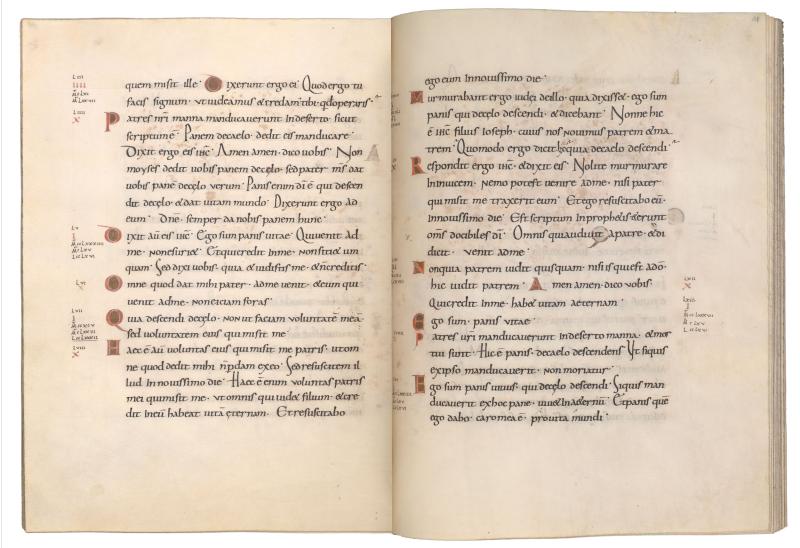 quem misit ille · Dixerunt ergo ei · Quod ergo tu
facis signum · ut uideamus & credam' tibi · qd operaris ·
Patres nr̄i manna manducauerunt in deserto · sicut
scriptum ē · Panem de caelo · dedit eis manducare ·
Dixit ergo eis ihc̄ · Amen amen · dico uobis · Non
moyses dedit uobis panem de cęlo · sed pater m̄s dat
uobis panē de cęlo uerum · Panis enim dī ē qui descen
dit de cęlo · & dat uitam mundo · Dixerunt ergo ad
eum · Dn̄e · semper da nobis panem hunc ·
Dixit aū eis ihc̄ · Ego sum panis uitae · Qui uenit ad
me · non esuri& · Et qui credit in me · non siti& um
quam · Sed dixi uobis · quia & uidistis me · & n̄ creditis ·
Omne quod dat mihi pater · ad me ueni& · & eum qui
uenit ad me · non eiciam foras ·
Quia descendi de cęlo · non ut faciam uoluntatē meā ·
sed uoluntatem eius qui misit me ·
Haec ē aū uoluntas eius qui misit me patris · ut om
ne quod dedit mihi n̄ pdam ex eo · Sed resuscitem il
lud in nouissimo die · Haec ē enim uoluntas patris
mei qui misit me · ut omnis qui uid& filium · & cre
dit in eū habeat uitā ęternam · Et resuscitabo
ego eum in nouissimo die ·
Murmurabant ergo iudei de illo · quia dixiss& · ego sum
panis qui de cęlo descendi · & dicebant · Nonne hic
ē ihc̄ filius ioseph · cuius nos nouimus patrem & ma
trem · Quomodo ergo dicit hic quia de caelo descendi ·
Respondit ergo ihc̄ · & dixit eis · Nolite murmurare
in inuicem · nemo potest uenire ad me · nisi pater
qui misit me traxerit eum · Et ego resuscitabo eū ·
in nouissimo die · Est scriptum in prophetis · & erunt
om̄s docibiles dī · Omnis qui audiuit a patre · & di
dicit · uenit ad me ·
Non quia patrem uidit quisquam · nisi is qui est a dō ·
hic uidit patrem · Amen amen dico uobis ·
Qui credit in me · hab& uitam aeternam ·
Ego sum · panis uitae ·
Patres ur̄i manducauerunt in deserto manna · & mor
tui sunt · Hic ē panis · de caelo descendens · Ut siquis
ex ipso manducauerit · non moriatur ·
Ego sum panis uiuus · qui de cęlo descendi · Siquis man
ducauerit ex hoc pane · uiu& in aeternū · Et panis quē
ego dabo · caro mea ē · pro uita mundi ·